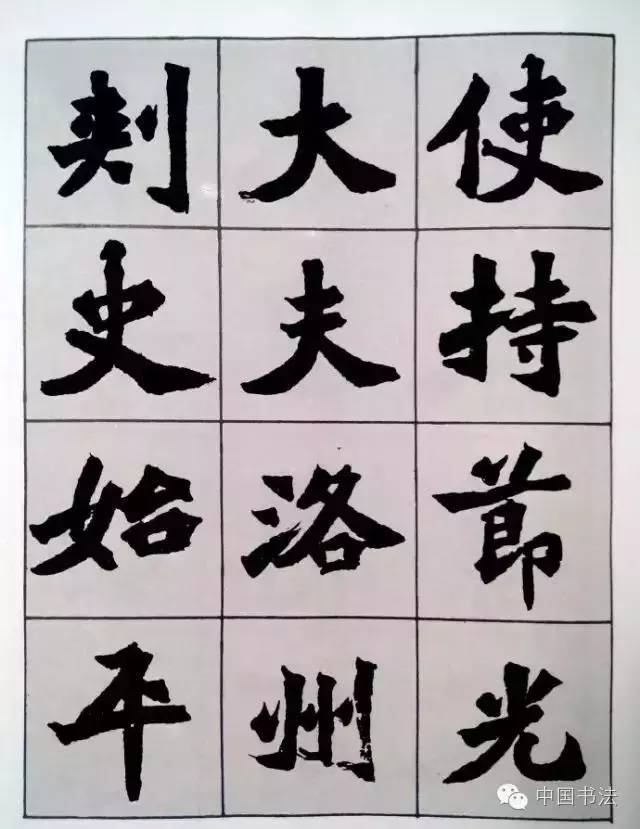 使持節光
大夫洛州
刾史始平
中国书法